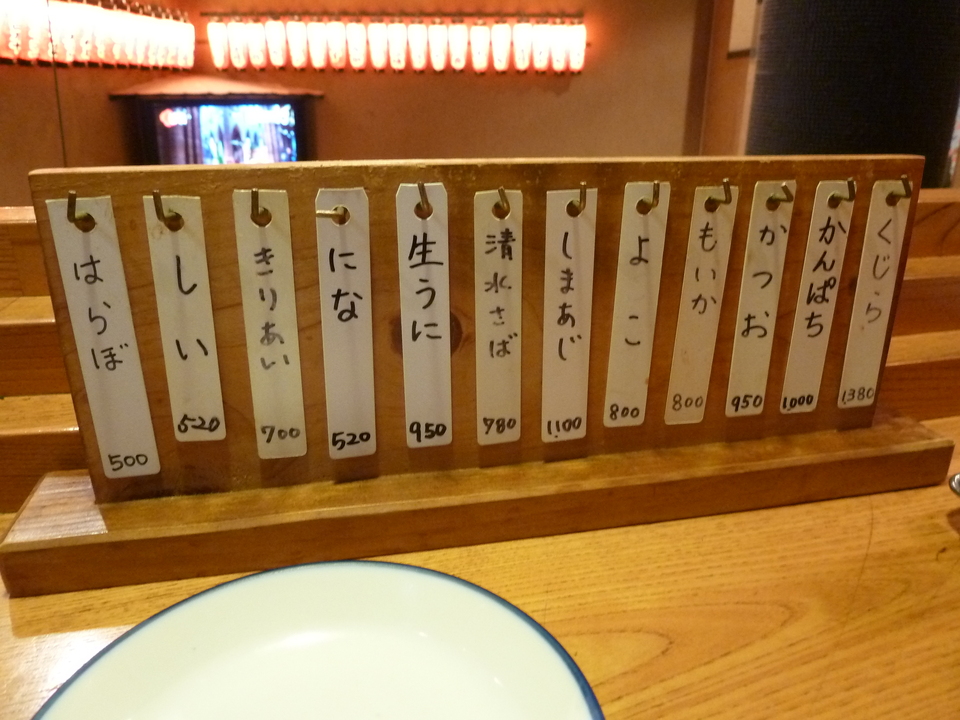 くじら 1,380
かんぱち 1,000
かつお 950
もいか 800
よこ 800
しまあじ 1,100
清水さば 780
生うに 950
にな 520
きりあい 700
しい 520
はらぼ 500